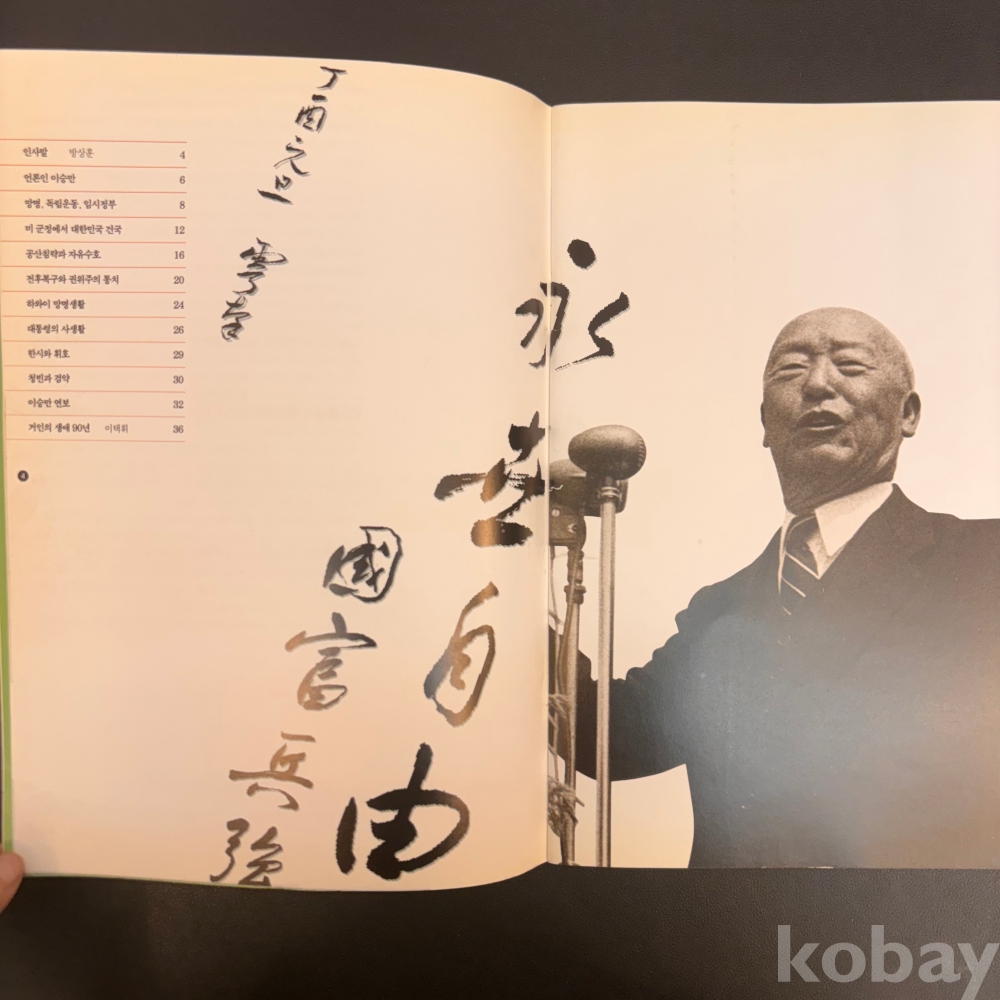 인사말 방상훈 4
언론인 이승만 6
망명, 독립운동, 임시정부 8
미 군정에서 대한민국 건국 12
공산침략과 자유수호 16
전후복구와 권위주의 통치 20
하와이 망명생활 24
대통령의 사생활 26
한시와 휘호 29
청빈과 검약 30
이승만 연보 32
거인의 생애 90년 이택휘 36
4
永世自由
國富兵強
丁酉元旦
雩南
kobay